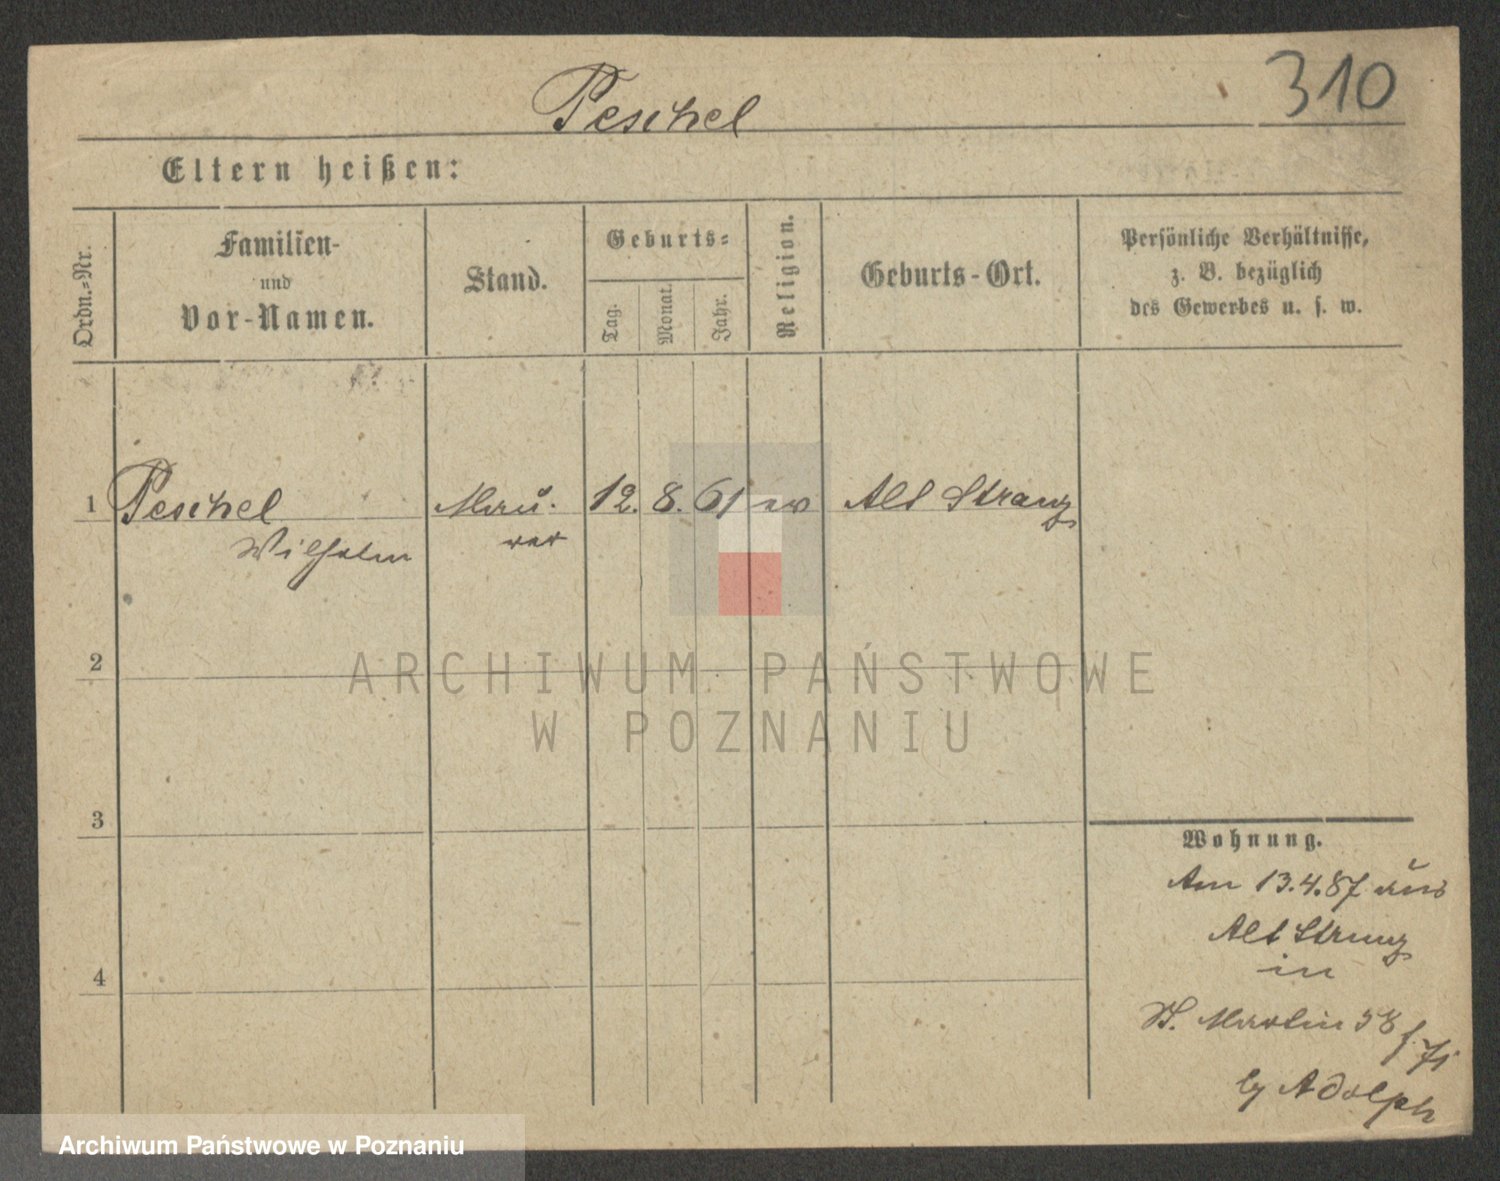 310
Peschel
Eltern heißen:
Ordn.-Nr.
Familien-
und
Vor-Namen.
Stand.
Geburts-
Tag.
Monat.
Jahr.
Religion.
Geburts-Ort.
Persönliche Verhältnisse,
z. B. bezüglich
des Gewerbes u. s. w.
1 Peschel Mau- 12. 8. 61 ev Alt Stranz
Wilhelm rer
2
ARCHIWUM PAŃSTWOWE
W POZNANIU
3
Wohnung.
Am 13.4.87 aus
Alt Stranz
4
in
St. Martin 58
by Adolph
Archiwum Państwowe w Poznaniu